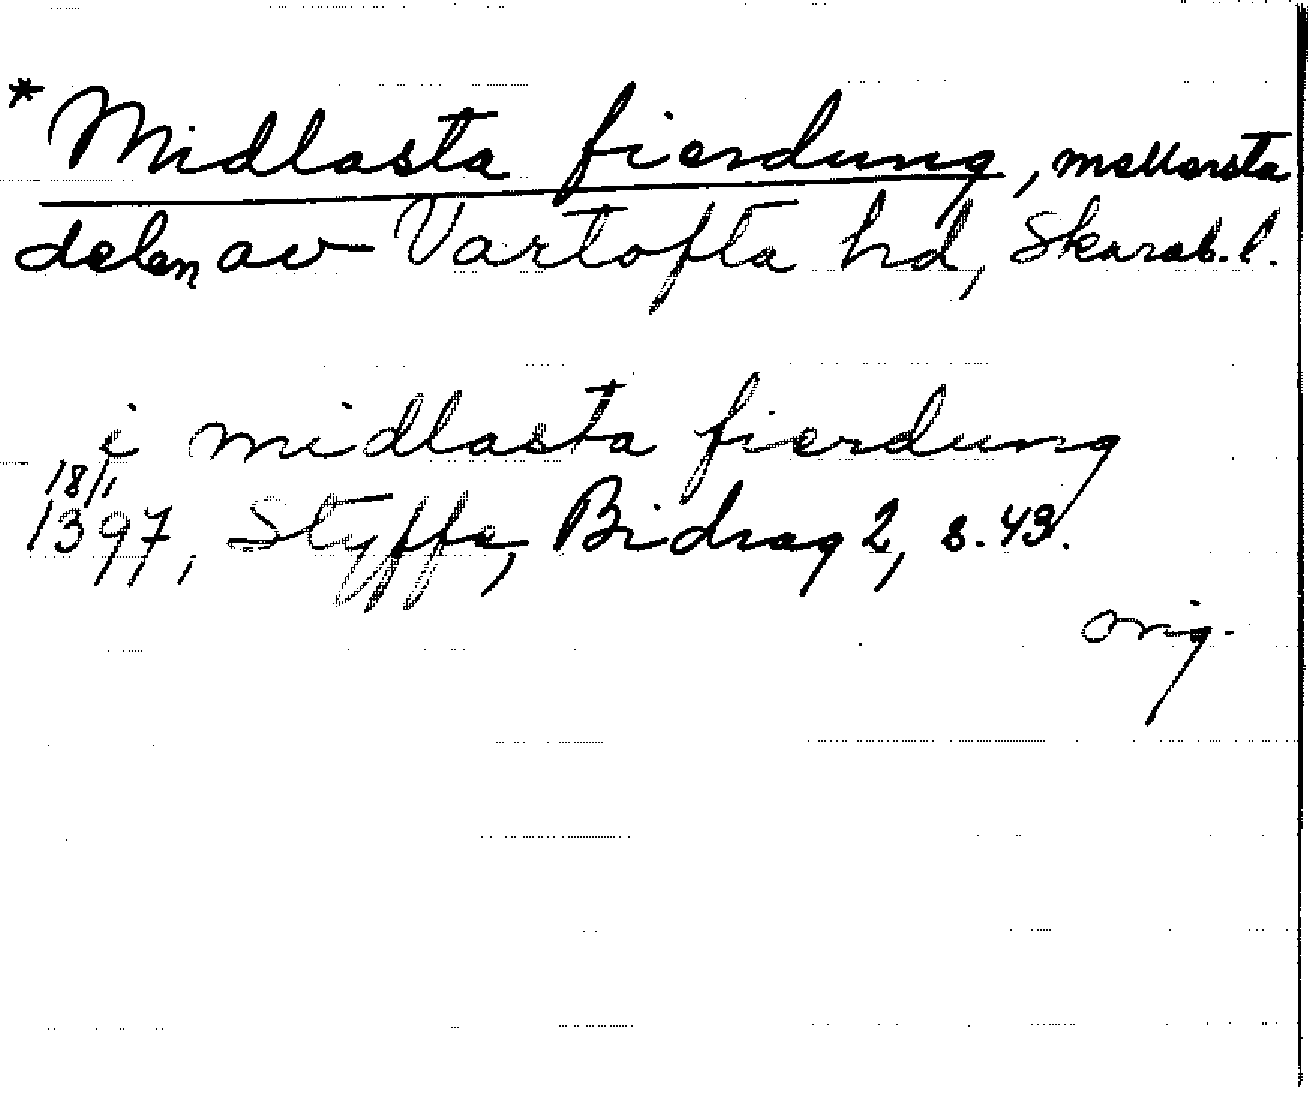 * Midlasta fierdung, mellersta
delen av Vartofta hd, Skarab. l.
i midlasta fierdung
18/1
1397, Styffe, Bidrag 2, s. 43.
orig.